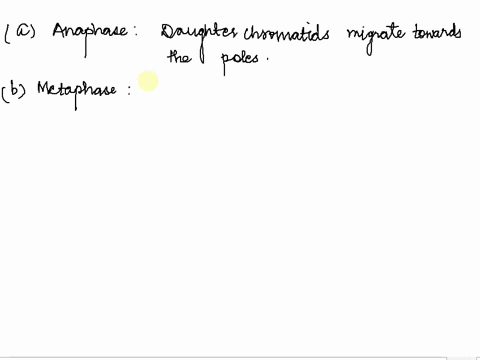 (a) Anaphase: Daughter chromatids migrate towards
the poles.
(b) Metaphase: